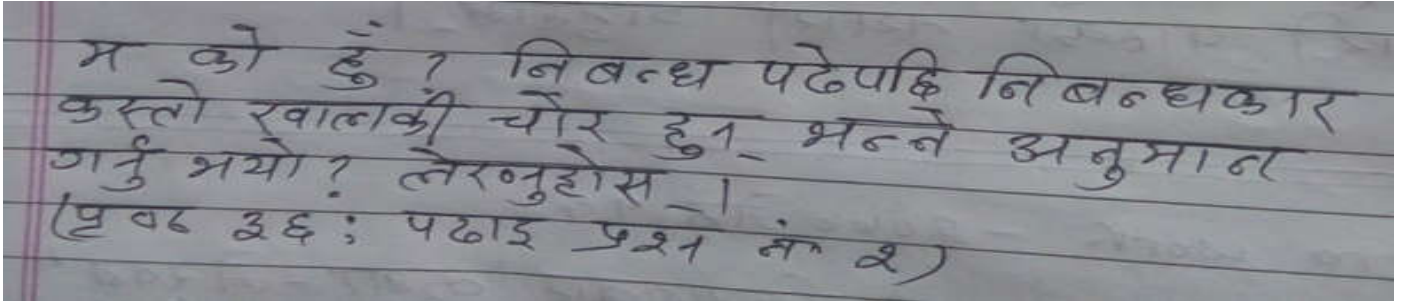 म को हुँ ? निबन्ध पढेपछि निबन्धकार
कस्तो खालको चोर हुन् भन्ने अनुमान
गर्नु भयो ? लेख्नुहोस् ।
(पृष्ठ ३६ : पढाइ प्रश्न नं २)